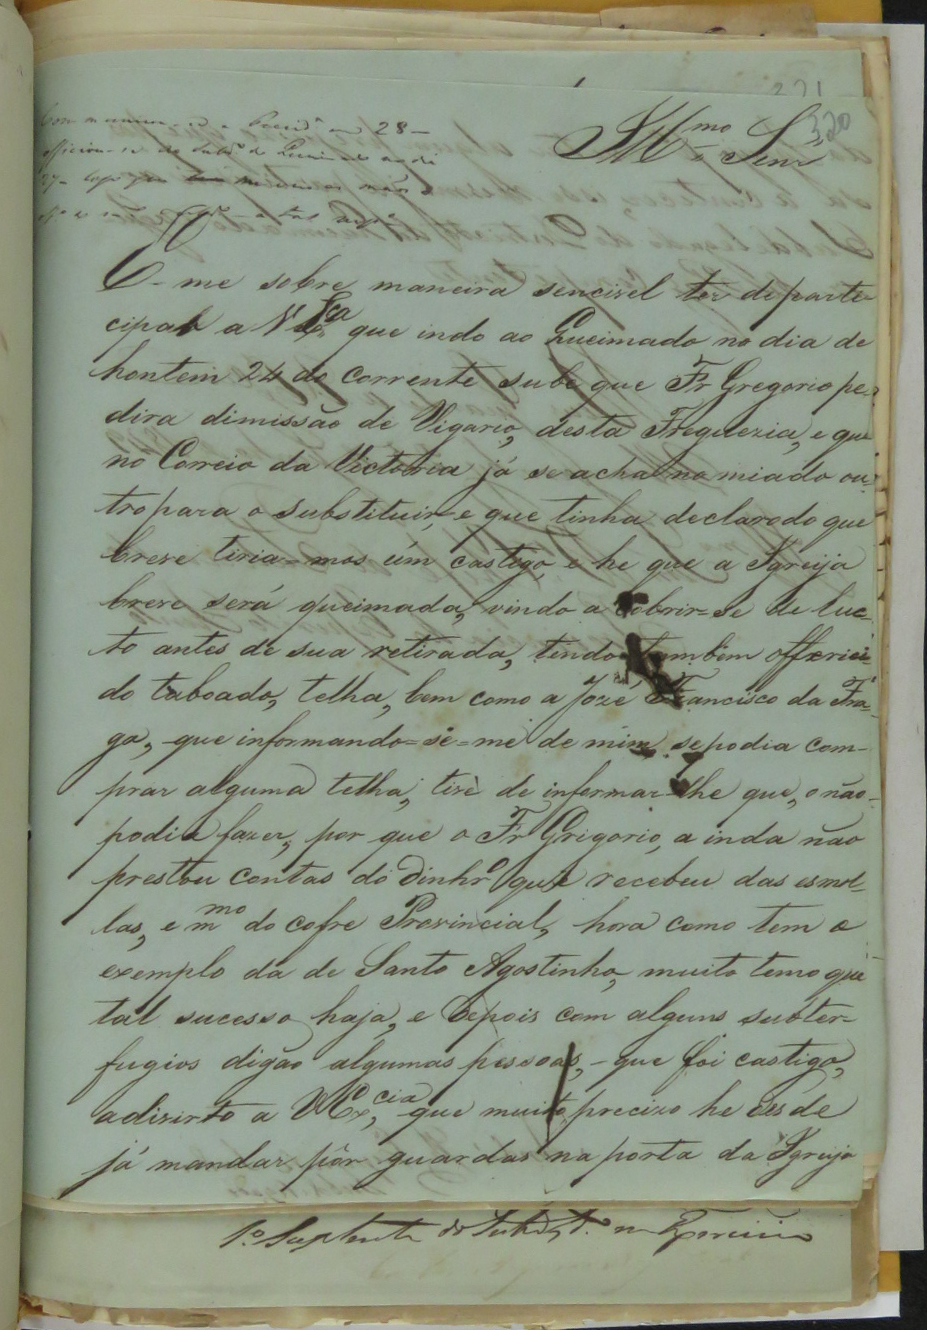 221
320
Illmo Senr
28
É-me sobre maneira sencivel ter de parte-
cipar a V Exca que indo ao Queimado no dia de
hontem 24 do corrente sube que Fr Gregorio pe-
dira dimissão de Vigario, desta Freguezia, e que
no Correio da Victoria já se acha no miado ou-
tro para o substituir, e que tinha declarodo que
breve tiria-mos um castigo, e he que a Igreija
breve será queimada, vindo a cobrir-se de luc-
to antes de sua retirada, tindo também offerici-
do taboado, telha, bem como a Jozé Francisco da Fra-
ga, que informando-se-me de mim se podia com-
prar alguma telha, tive de informar-lhe que, o não-
podia fazer, por que o Fr Grigorio, a inda não
prestou contas do dinhro que recebeu das esmol-
las, e mmo do cofre Provincial, hora como tem o
exemplo da de Santo Agostinho, muito temo que
tal sucesso haja, e depois com alguns subter-
fugios digão algumas pessoas, - que foi castigo,
advirto a V Excia, que muito precizo he desde
já mandar pôr guardas na porta da Igreija
1º Suplente do Subdo. em Exercicio